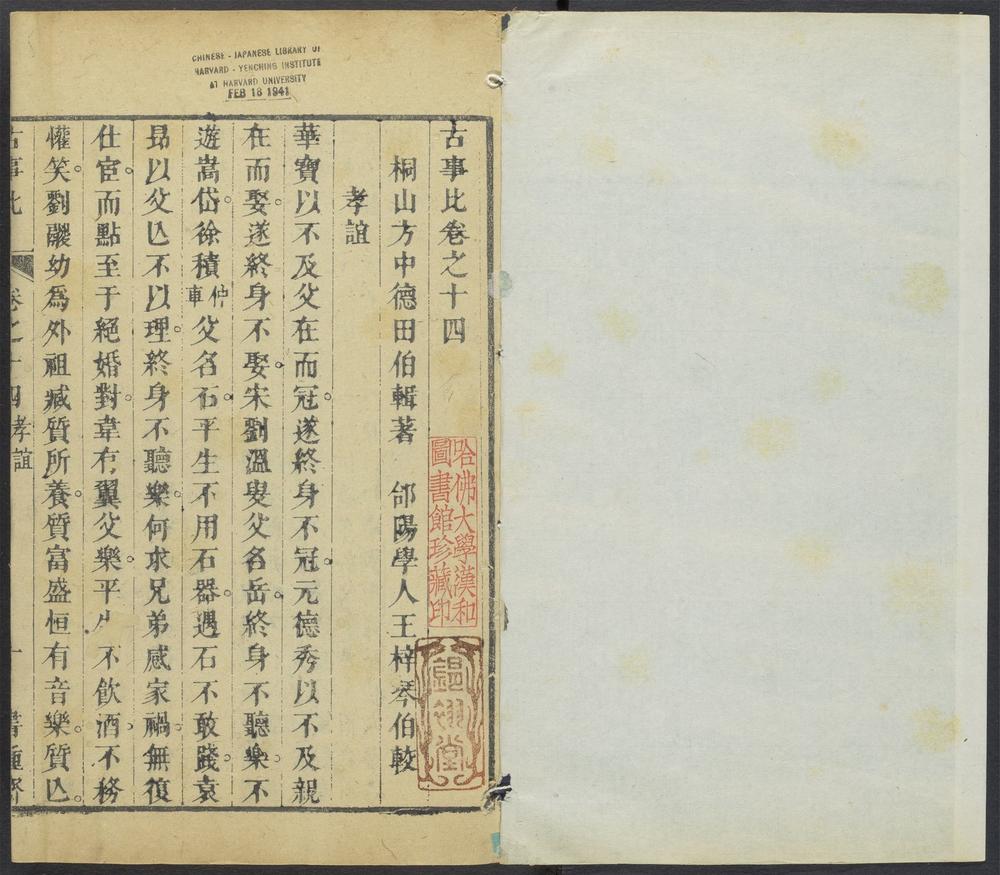 CHINESE - JAPANESE LIBRARY OF
HARVARD - YENCHING INSTITUTE
AT HARVARD UNIVERSITY
FEB 18 1941
古事比卷之十四
桐山方中德田伯輯著 郃陽學人王梓琴伯較
孝誼
華寶以不及父在而冠遂終身不冠元德秀以不及親
在而娶遂終身不娶宋劉溫叟父名岳終身不聽樂不
遊嵩岱徐積仲車父名石平生不用石器遇石不敢踐袁
昻以父亾不以理終身不聽樂何求兄弟感家禍無復
仕宦而點至于絕婚對韋有翼父樂平 不飲酒不務
懽笑劉瓛幼爲外祖臧質所養質富盛恒有音樂質亾
古事比 卷之十四孝誼 一
哈佛大學漢和
圖書館珍藏印